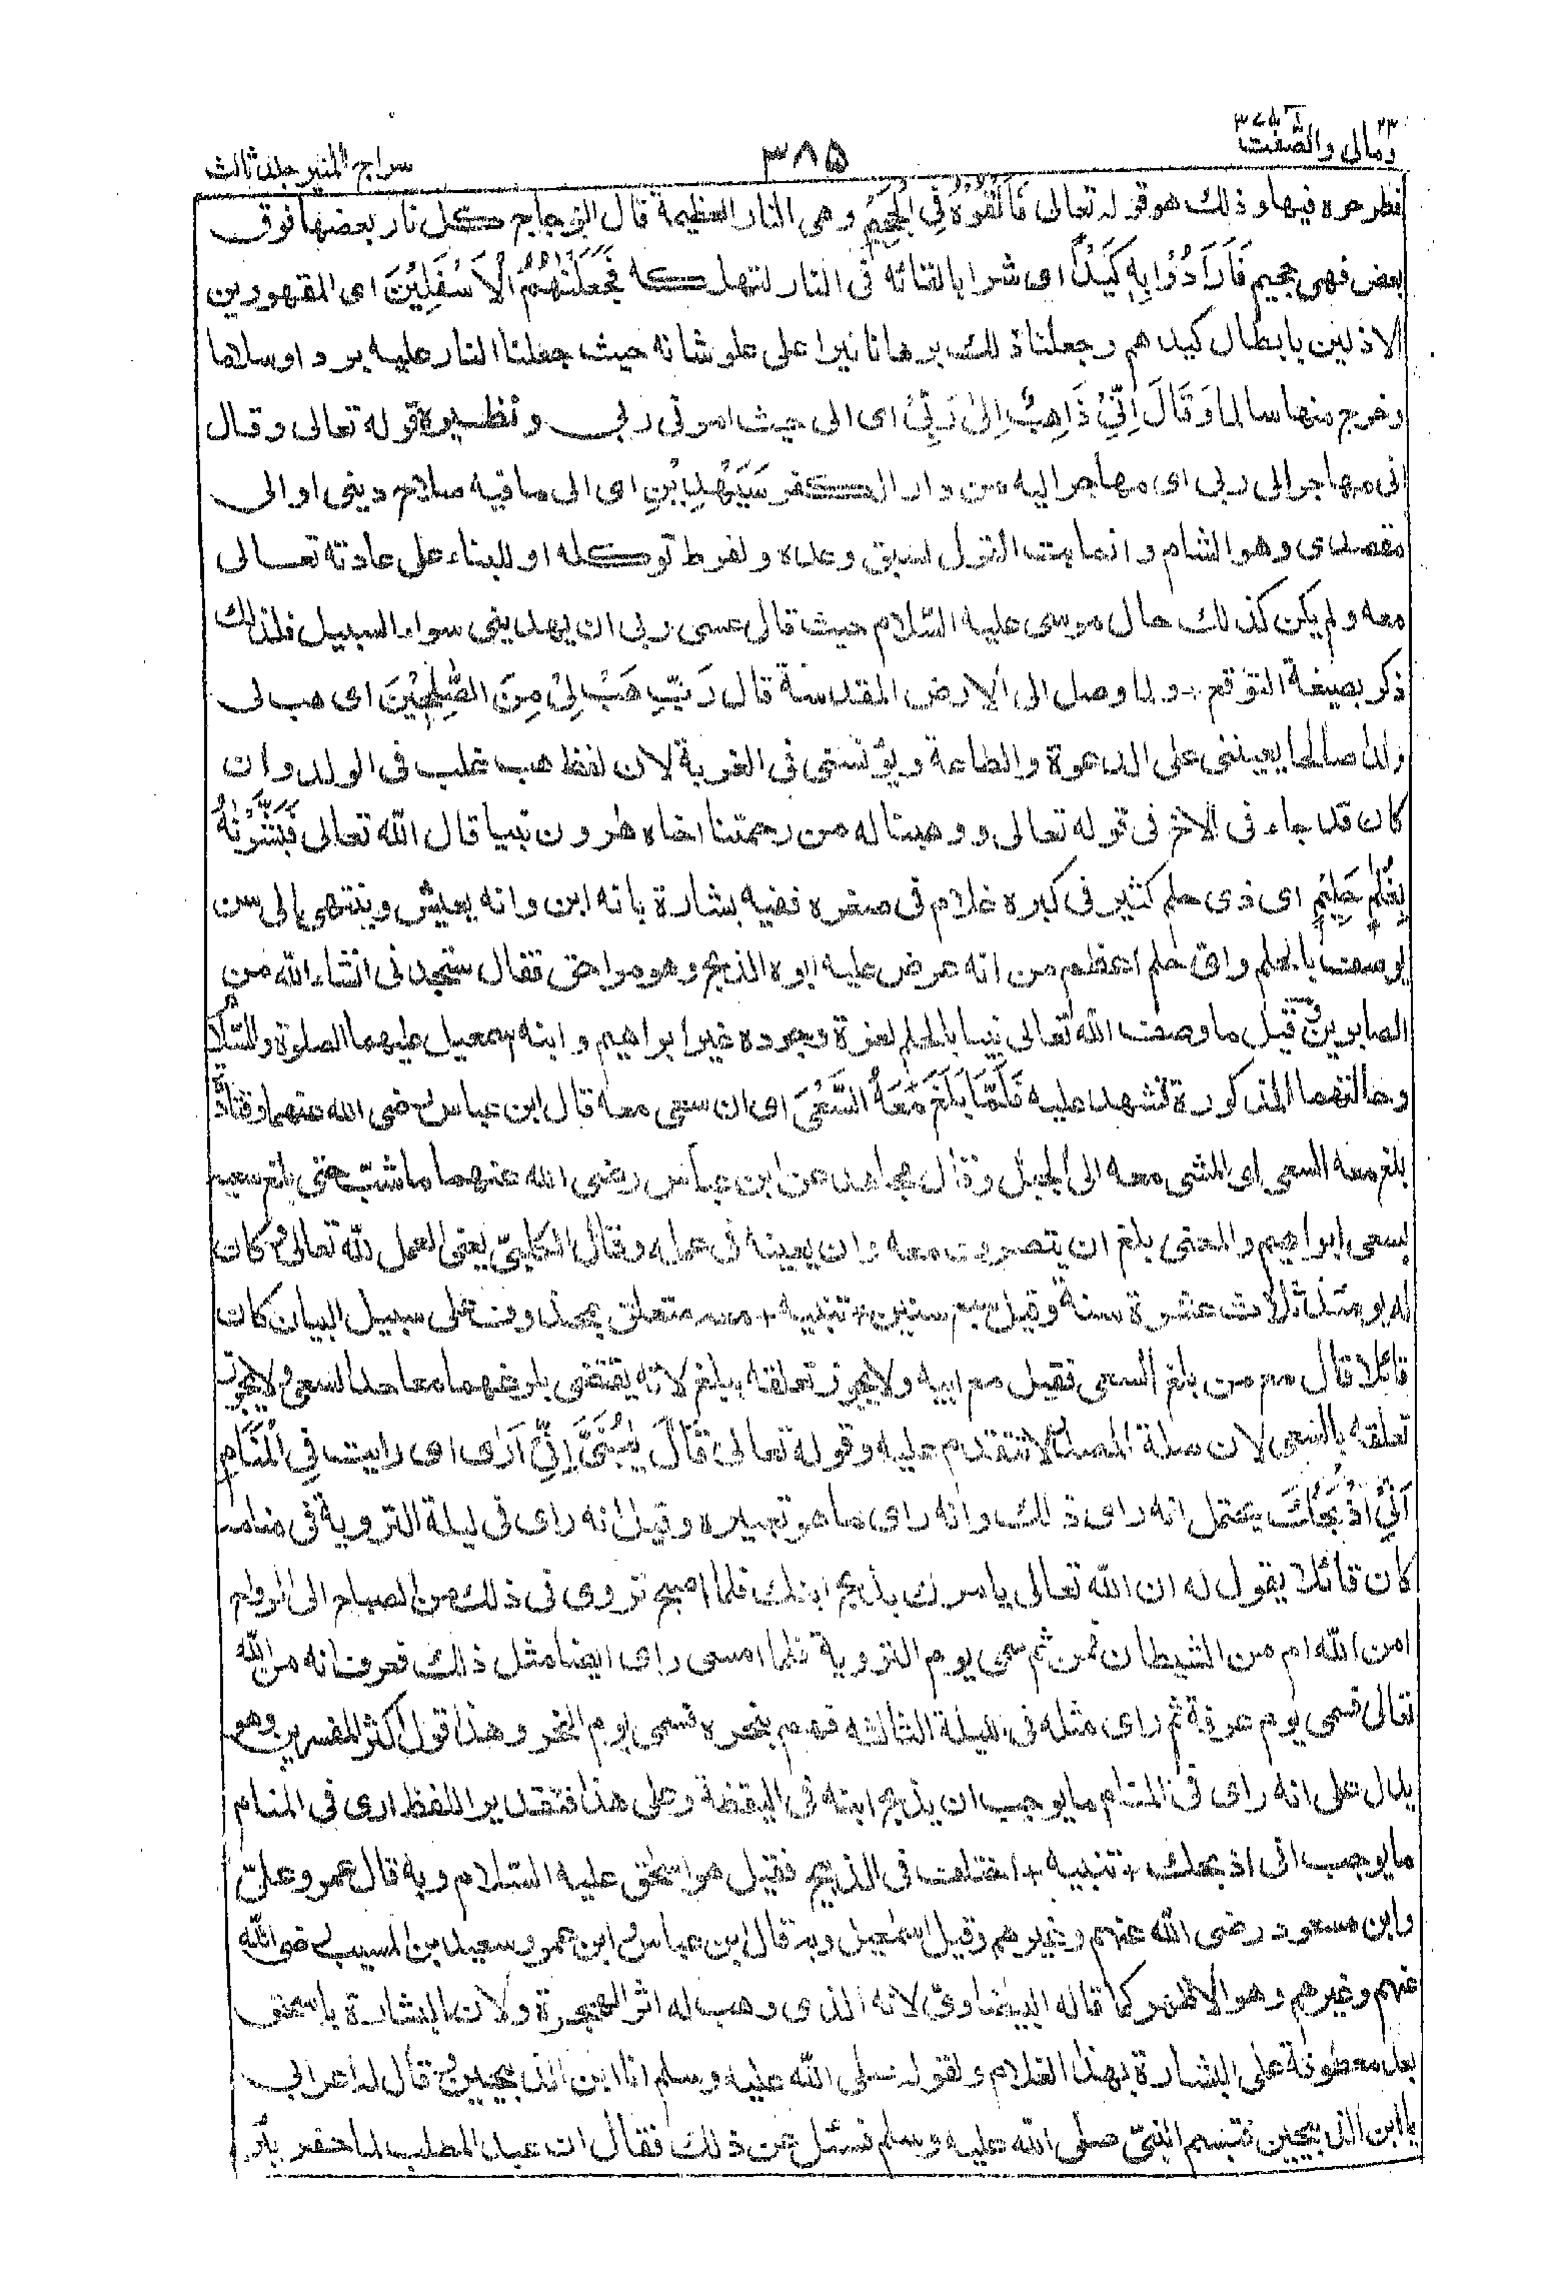 ومالى والصّٰفّٰت ٣٧
٣٨٥
سراج المنير جلد ثالث
فطرحوه فيها وذلك هو قوله تعالى فَاَلْقُوْهُ فِى الْجَحِيْمِ وهى النار العظيمة قال الزجاج كل نار بعضها فوق
بعض فهى جحيم فَاَرَادُوْا بِهٖ كَيْدًا اى شرا بالقائه فى النار لتهلكه فَجَعَلْنٰهُمُ الْاَسْفَلِيْنَ اى المقهورين
الاذلين بابطال كيدهم وجعلنا ذلك برهانا نيرا على علو شانه حيث جعلنا النار عليه بردا وسلاما
وخرج منها سالما وَقَالَ اِنِّىْ ذَاهِبٌ اِلٰى رَبِّىْ اى الى حيث امرنى ربى ونظيره قوله تعالى وقال
انى مهاجر الى ربى اى مهاجر اليه من دار الكفر سَيَهْدِيْنِ اى الى ما فيه صلاح دينى او الى
مقصدى وهو الشام وانما بت القول لسبق وعده ولفرط توكله او للبناء على عادته تعالى
معه ولم يكن كذلك حال موسى عليه السّلام حيث قال عسى ربى ان يهدينى سواء السبيل فلذلك
ذكر بصيغة التوقع ولما وصل الى الارض المقدسة قال رَبِّ هَبْ لِىْ مِنَ الصّٰلِحِيْنَ اى هب لى
ولدا صالحا يعيننى على الدعوة والطاعة ويؤنسنى فى الغربة لان لفظ هب غلب فى الولد وان
كان قد جاء فى الاخ فى قوله تعالى ووهبنا له من رحمتنا اخاه هٰرون نبيا قال الله تعالى فَبَشَّرْنٰهُ
بِغُلٰمٍ حَلِيْمٍ اى ذى حلم كثير فى كبره غلام فى صغره ففيه بشارة بانه ابن وانه يعيش وينتهى الى سن
يوصف بالحلم واى حلم اعظم من انه عرض عليه ابوه الذبح وهو مراهق فقال ستجدنى انشاء الله من
الصابرين وقيل ما وصف الله تعالى نبيا بالحلم لعزة وجوده غير ابراهيم وابنه اسمعيل عليهما الصلوة والسّلام
وحالتهما المذكورة تشهد عليه فَلَمَّا بَلَغَ مَعَهُ السَّعْىَ اى ان سعى معه قال ابن عباس رضى الله عنهما وقتادة
بلغ معه السعى اى المشى معه الى الجبل وقال مجاهد عن ابن عباس رضى الله عنهما ما شب حتى بلغ سعيه
لسعى ابراهيم والمعنى بلغ ان يتصرف معه وان يعينه فى عمله وقال الكلبىّ يعنى العمل لله تعالى وكان
له يومئذ ثلاث عشرة سنة وقيل سبع سنين + تنبيه + معه متعلق بمحذوف على سبيل البيان كان
قائلا قال مع من بلغ السعى فقيل مع ابيه ولا يجوز تعلقه ببلغ لانه يقتضى بلوغهما معا حد السعى ولا يجوز
تعلقه بالسعى لان صلة المصدر لا تتقدم عليه وقوله تعالى قَالَ يٰبُنَىَّ اِنِّىْ اَرٰى اى رايت فِى الْمَنَامِ
اَنِّىْ اَذْبَحُكَ يحتمل انه راى ذلك وانه راى ما هو تعبيره وقيل انه راى فى ليلة التروية فى منامه
كان قائلا يقول له ان الله تعالى يامرك بذبح ابنك فلما اصبح تروى فى ذلك من الصباح الى الرواح
امن الله ام من الشيطان فمن ثم سمى يوم التروية فلما امسى راى ايضا مثل ذلك فعرف انه من الله
تعالى فسمى يوم عرفة ثم راى مثله فى الليلة الثالثه فهم بنحره فسمى يوم النحر وهذا قول اكثر المفسرين وهو
يدل على انه راى فى المنام ما يوجب ان يذبح ابنه فى اليقظة وعلى هذا فتقدير اللفظ ارى فى المنام
ما يوجب انى اذبحك + تنبيه + اختلف فى الذبيح فقيل هو اسحٰق عليه السّلام وبه قال عمر وعلىّ
وابن مسعود رضى الله عنهم وغيرهم وقيل اسمٰعيل وبه قال ابن عباس وابن عمر وسعيد بن المسيب رضى الله
عنهم وغيرهم وهو الاظهر كما قاله البيضاوىّ لانه الذى وهب له اثر الهجرة ولان البشارة باسحٰق
بعد معطوفة على البشارة بهذا الغلام ولقوله صلى الله عليه وسلم انا ابن الذبيحين وقال له اعرابى
يا ابن الذبيحين فتبسم النبىّ صلى الله عليه وسلم فسئل عن ذلك فقال ان عبد المطلب لما حفر بئر